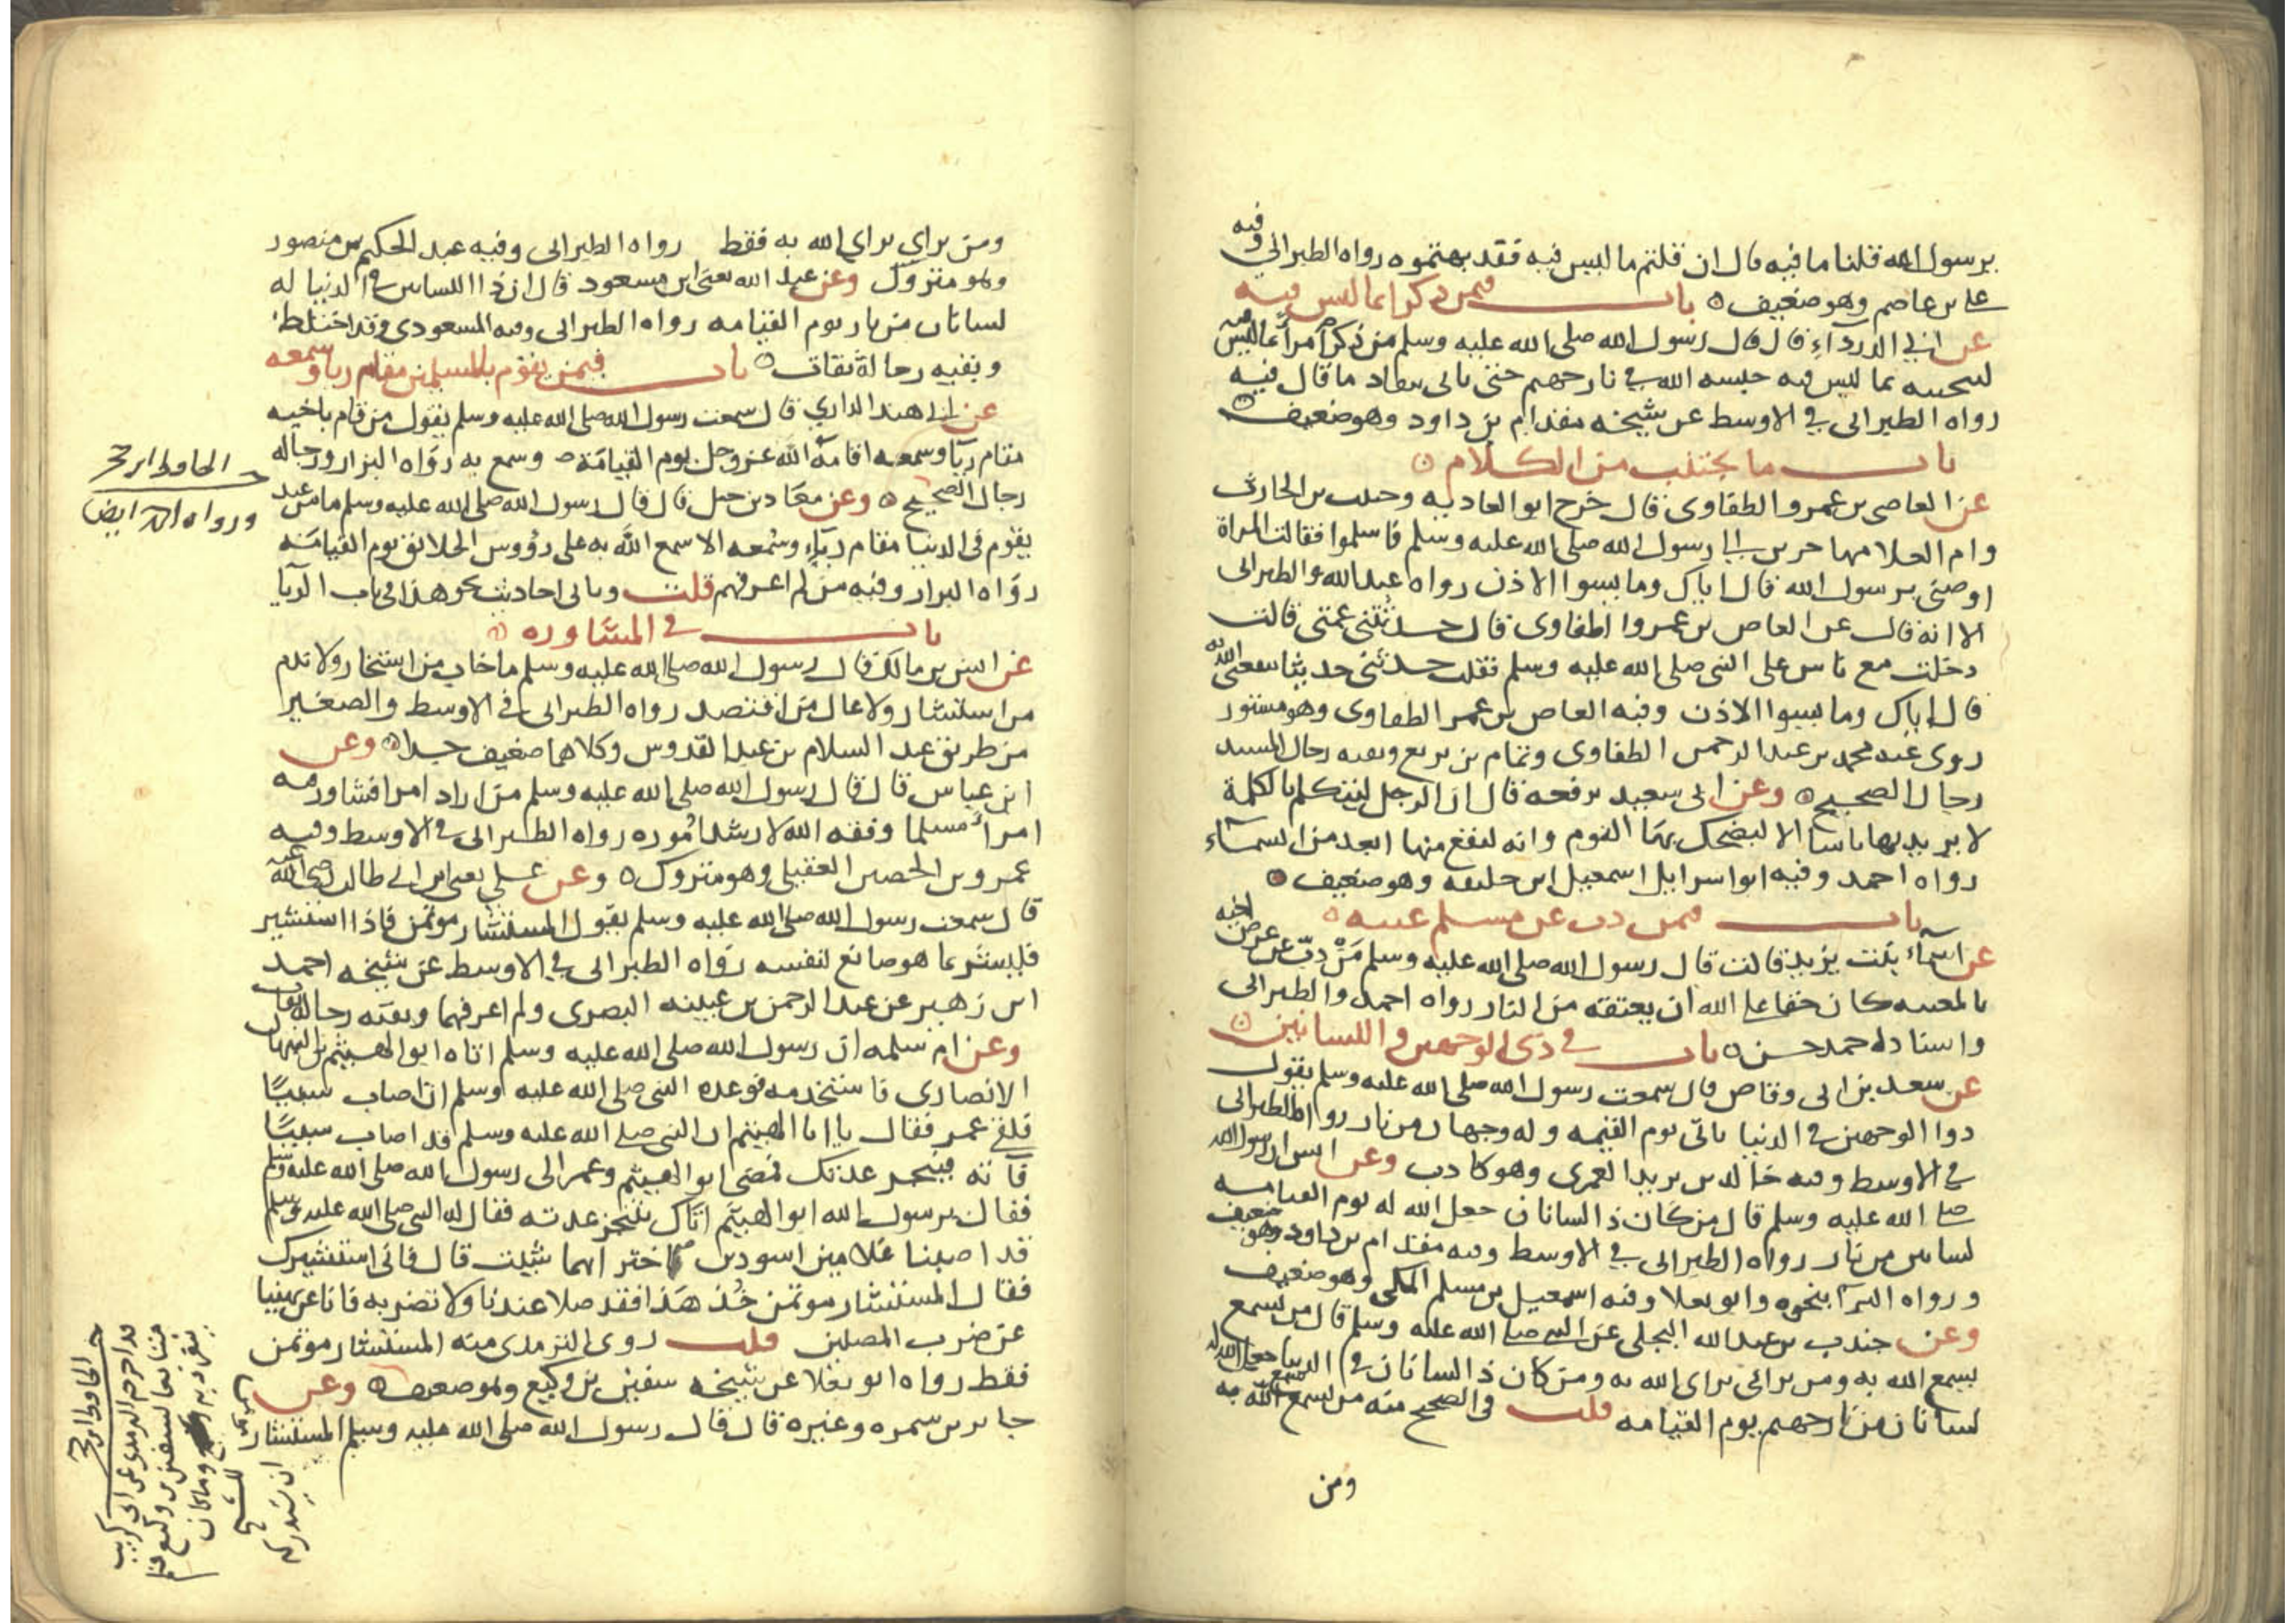 يرسول الله قلنا ما فيه قال ان قلتم ما ليس فيه فقد بهتموه رواه الطبراني وفيه
علي بن عاصم وهو ضعيف ه باب فيمن ذكر امرا بما ليس فيه
عن ابي الدرداء قال قال رسول الله صلى الله عليه وسلم من ذكر امرأ بما ليس فيه
ليعيبه بما ليس فيه حبسه الله في نار جهنم حتى ياتي بنفاد ما قال فيه
رواه الطبراني في الاوسط عن شيخه مقدام بن داود وهو ضعيف ه
باب ما يجتنب من الكلام ه
عن العاصي بن عمرو الطفاوي قال خرج ابو الغادية وحبيب بن الحارث
وام العلا مهاجرين الى رسول الله صلى الله عليه وسلم فاسلموا فقالت المراة
اوصني يرسول الله قال اياك وما يسوا الاذن رواه عبد الله والطبراني
الا انه قال عن العاص بن عمرو الطفاوي قال حدثتني عمتي قالت
دخلت مع ناس على النبي صلى الله عليه وسلم فقلت حدثني حديثا ينفعني الله به
قال اياك وما يسوا الاذن وفيه العاص بن عمر الطفاوي وهو مستور
روى عنه محمد بن عبد الرحمن الطفاوي وتمام بن بزيع وبقيه رجال المسند
رجال الصحيح ه وعن ابي سعيد يرفعه قال ان الرجل ليتكلم بالكلمة
لا يريد بها باسا الا ليضحك بها القوم وانه ليقع منها ابعد من السمآء
رواه احمد وفيه ابو اسرايل اسمعيل ابن خليفه وهو ضعيف ه
باب فيمن ذب عن مسلم غيبه ه
عن اسمآء بنت يزيد قالت قال رسول الله صلى الله عليه وسلم مَنْ ذبّ عن عرض اخيه
بالمغيبه كان حقا على الله ان يعتقه من النار رواه احمد والطبراني
واسناد احمد حسن ه باب في ذي الوجهين واللسانين ه
عن سعد بن ابي وقاص قال سمعت رسول الله صلى الله عليه وسلم يقول
ذوا الوجهين في الدنيا ياتي يوم القيمه وله وجهان من نار رواه الطبراني
في الاوسط وفيه خالد بن يزيد العمري وهو كاذب وعن انس ان رسول الله
صلى الله عليه وسلم قال من كان ذا لسانان جعل الله له يوم القيامه
لسانين من نار رواه الطبراني في الاوسط وفيه مقدام بن داود وهو ضعيف
ورواه البزار بنحوه وابو يعلا وفيه اسمعيل بن مسلم المكي وهو ضعيف
وعن جندب بن عبد الله البجلي عن النبي صلى الله عليه وسلم قال من يسمع
يسمع الله به ومن يرائي يراى الله به ومن كان ذا لسانان في الدنيا جعل الله له
لسانان من نار جهنم يوم القيامه قلت في الصحيح منه من يسمع يسمع الله به
ومن
ومن يراي يراي الله به فقط رواه الطبراني وفيه عبد الحكيم بن منصور
وهو متروك وعن عبد الله يعني ابن مسعود قال ان ذا اللسانين في الدنيا له
لسانان من نار يوم القيامه رواه الطبراني وفيه المسعودي وقد اختلط
وبقيه رجاله ثقات ه باب فيمن يقوم بالمسلمين مقام ريا وسمعه
عن ابي هند الداري قال سمعت رسول الله صلى الله عليه وسلم يقول من قام باخيه
مقام ريآ وسمعه اقامه الله عز وجل يوم القيامة وسمع به رواه البزار ورجاله
رجال الصحيح ه وعن معاذ بن جبل قال قال رسول الله صلى الله عليه وسلم ما من عبد
يقوم في الدنيا مقام ريآء وسمعه الا سمع الله به على رؤوس الخلائق يوم القيامه
رواه البزار وفيه من لم اعرفهم قلت وياتي احاديث نحو هذا في باب الريا
باب في المشاوره ه
عن انس بن مالك قال قال رسول الله صلى الله عليه وسلم ما خاب من استخار ولا ندم
من استشار ولا عال من اقتصد رواه الطبراني في الاوسط والصغير
من طريق عبد السلام بن عبد القدوس وكلاهما ضعيف جدا ه وعن
ابن عباس قال قال رسول الله صلى الله عليه وسلم من اراد امرا فشاور فيه
امرأ مسلما وفقه الله لارشد اموره رواه الطبراني في الاوسط وفيه
عمرو بن الحصين العقيلي وهو متروك ه وعن علي يعني ابن ابي طالب رضي الله عنه
قال سمعت رسول الله صلى الله عليه وسلم يقول المستشار موتمن فاذا استشير
فليشر بما هو صانع لنفسه رواه الطبراني في الاوسط عن شيخه احمد
ابن زهير عن عبد الرحمن بن عيينه البصري ولم اعرفهما وبقيه رجاله ثقات
وعن ام سلمه ان رسول الله صلى الله عليه وسلم اتاه ابو الهيثم بن التيهان
الانصاري فاستخدمه فوعده النبي صلى الله عليه وسلم ان اصاب سبيا
فلقي عمر فقال يا ابا الهيثم ان النبي صلى الله عليه وسلم قد اصاب سبيا
فآته فينجز عدتك فمضى ابو الهيثم وعمر الى رسول الله صلى الله عليه وسلم
فقال يرسول الله ابو الهيثم اتاك يتنجز عدته فقال له النبي صلى الله عليه وسلم
قد اصبنا غلامين اسودين اختر ايهما شيت قال فاني استشيرك
فقال المستشار موتمن خُذ هذا فقد صلا عندنا ولا تضربه فانا عن نهينا
عن ضرب المصلين قلت روى الترمذي منه المستشار موتمن
فقط رواه ابو يعلا عن شيخه سفين بن وكيع وهو ضعيف ه وعن
جابر بن سمره وغيره قال قال رسول الله صلى الله عليه وسلم المستشار
ورواه احمد ايضا